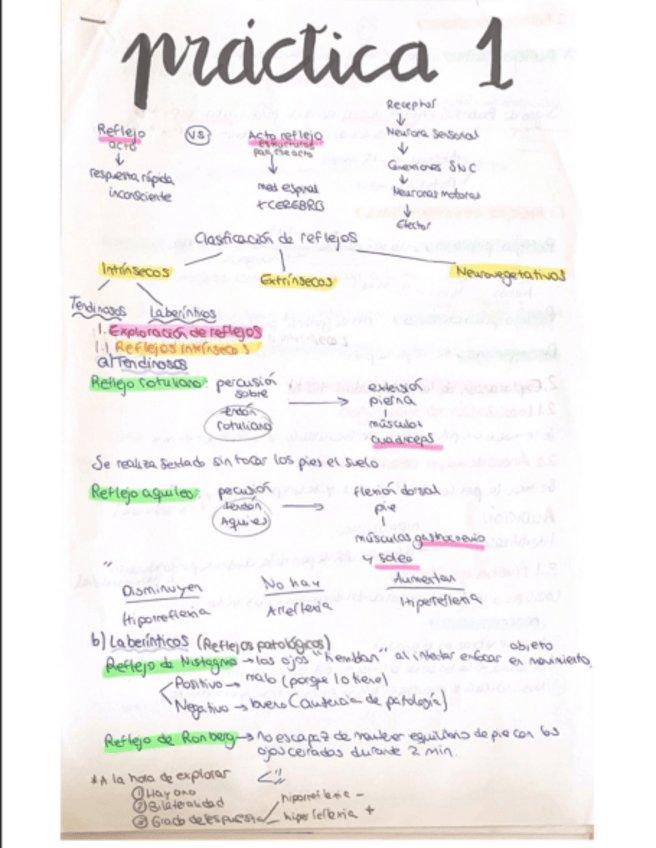 práctica 1
Receptor
Reflejo VS Acto reflejo Neurona sensorial
acto estructuras
para ese acto
respuesta rápida Conexiones SNC
inconsciente med espinal Neuronas motoras
X CEREBRO
Efector
Clasificación de reflejos
Intrínsecos Extrínsecos Neurovegetativos
Tendinosos Laberínticos
1. Exploración de reflejos
1.1 Reflejos intrínsecos
a) Tendinosos
Reflejo rotuliano: percusión extensión
sobre pierna
tendón músculos
rotuliano cuadriceps
Se realiza sentado sin tocar los pies el suelo
Reflejo aquileo: pecusión flexión dorsal
tendón pie
Aquiles músculos gastrocnemio
y soleo
Disminuyen No hay Aumentan
Hiporreflexia Arreflexia Hiperreflexia
b) Laberínticos (Reflejos patológicos)
abieto
Reflejo de Nistagmo → los ojos "tiemblan" al intentar enfocar en movimiento
Positivo → malo (porque lo tiene)
Negativo → bueno (ausencia de patología)
Reflejo de Romberg → No es capaz de mantener equilibrio de pie con los
ojos cerrados durante 2 min.
*A la hora de explorar
① Hay o no
② Bilateralidad hiporreflexia -
③ Grado de respuesta hiperreflexia +